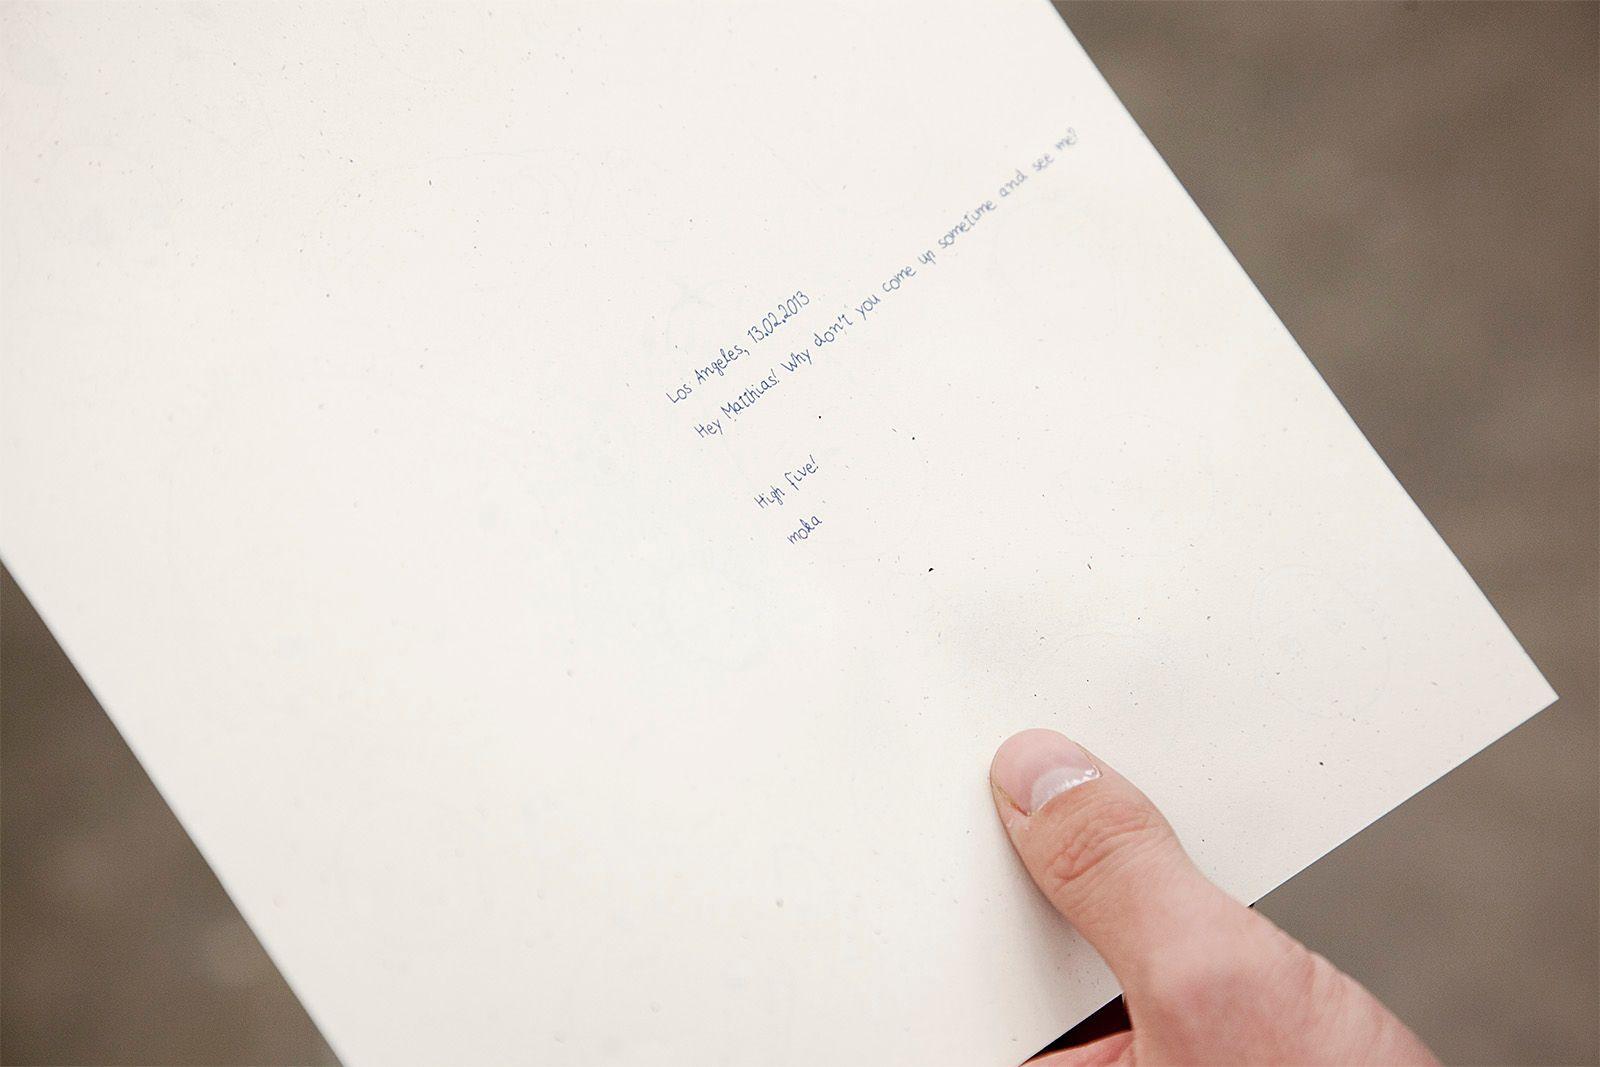 Los Angeles, 13.02.2013
Hey Matthias! Why don't you come up sometime and see me?
High five!
moka